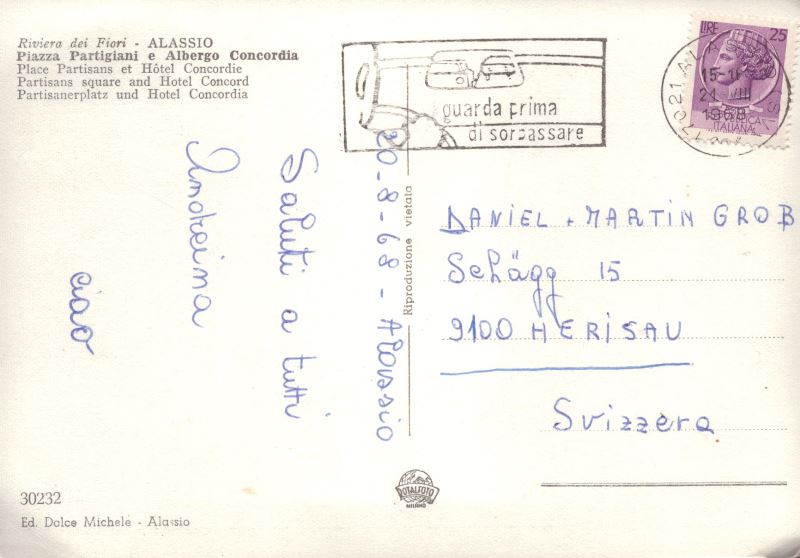 Riviera dei Fiori - ALASSIO
Piazza Partigiani e Albergo Concordia
Place Partisans et Hôtel Concordie
Partisans square and Hotel Concord
Partisanerplatz und Hotel Concordia
guarda prima
di sorpassare
LIRE 25
15-1
21 VIII
1968
ITALIANA
20-8-68 - Alassio
Saluti a tutti
Andreina
ciao
Riproduzione vietata
DANIEL + MARTIN GROB
Schägg 15
9100 HERISAU
Svizzera
ROTALFOTO
MILANO
30232
Ed. Dolce Michele - Alassio